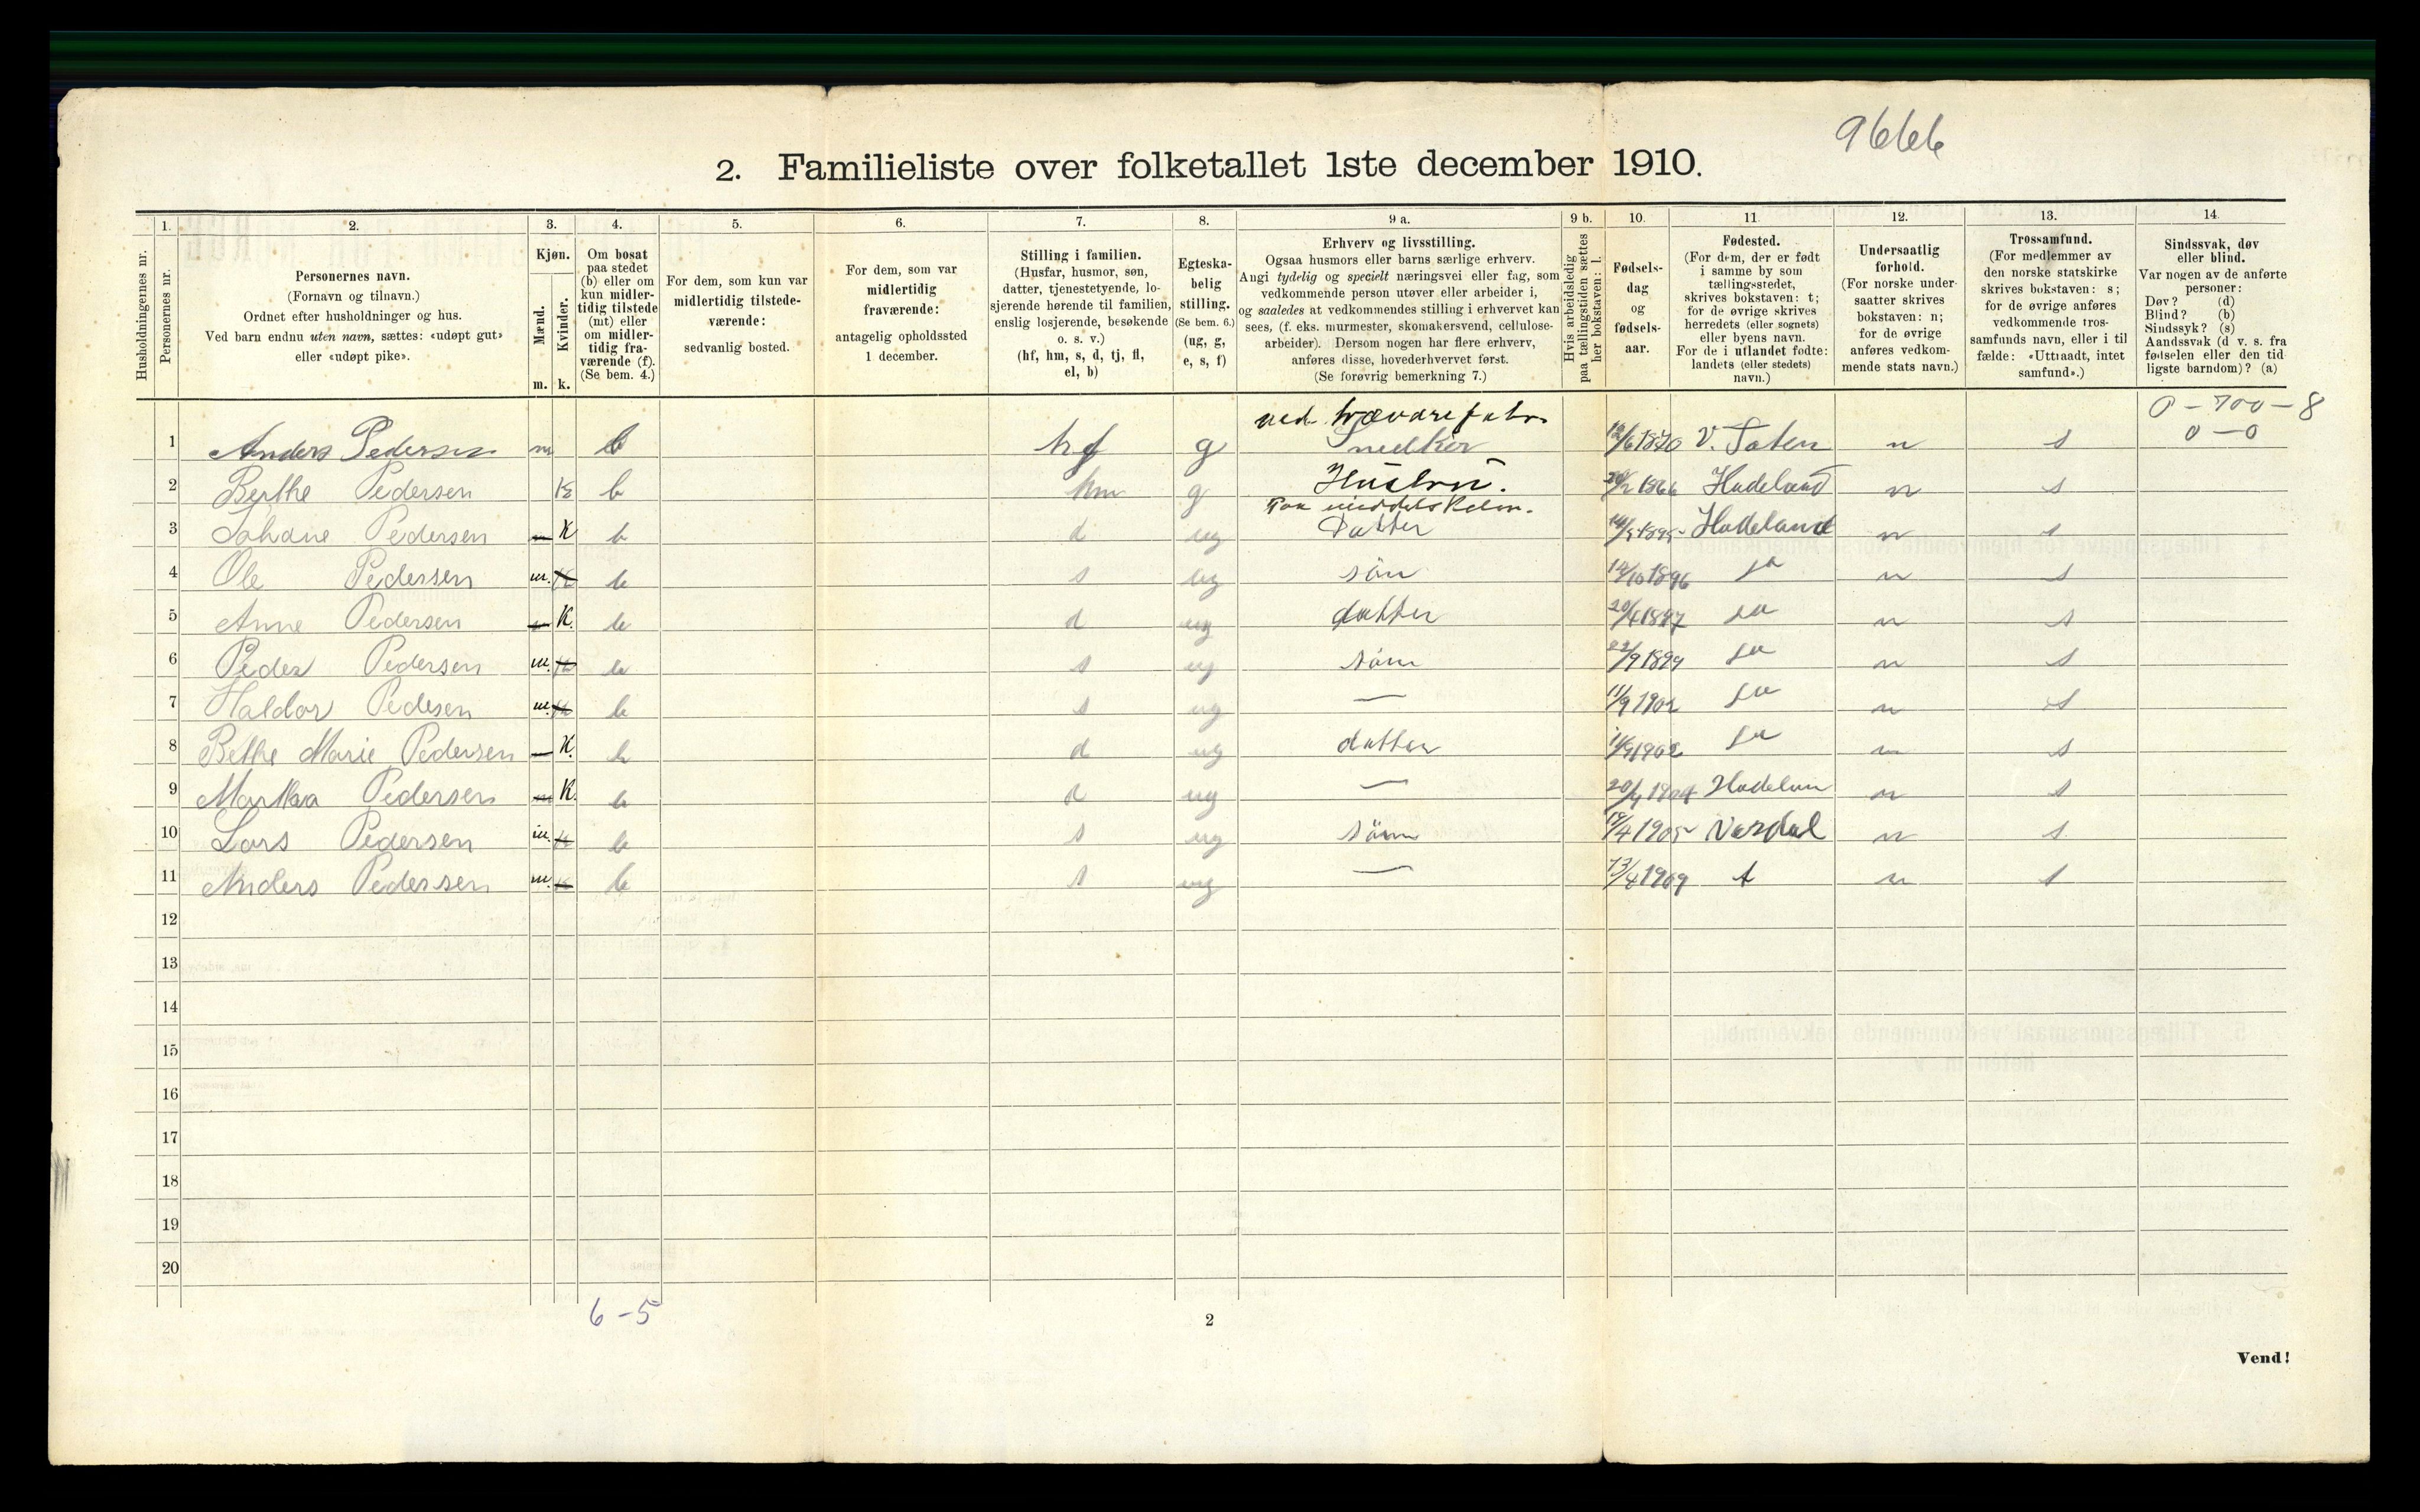 9666
2. Familieliste over folketallet 1ste december 1910.
1. 2. 3. 4. 5. 6. 7. 8. 9 a. 9 b. 10. 11. 12. 13. 14.
Husholdningernes nr.
Personernes nr.
Personernes navn.
(Fornavn og tilnavn.)
Ordnet efter husholdninger og hus.
Ved barn endnu uten navn, sættes: «udøpt gut»
eller «udøpt pike».
Kjøn.
Mænd.
Kvinder.
m. k.
Om bosat
paa stedet
(b) eller om
kun midler-
tidig tilstede
(mt) eller
om midler-
tidig fra-
værende (f).
(Se bem. 4.)
For dem, som kun var
midlertidig tilstede-
værende:
sedvanlig bosted.
For dem, som var
midlertidig
fraværende:
antagelig opholdssted
1 december.
Stilling i familien.
(Husfar, husmor, søn,
datter, tjenestetyende, lo-
sjerende hørende til familien,
enslig losjerende, besøkende
o. s. v.)
(hf, hm, s, d, tj, fl,
el, b)
Egteska-
belig
stilling.
(Se bem. 6.)
(ug, g,
e, s, f)
Erhverv og livsstilling.
Ogsaa husmors eller barns særlige erhverv.
Angi tydelig og specielt næringsvei eller fag, som
vedkommende person utøver eller arbeider i,
og saaledes at vedkommendes stilling i erhvervet kan
sees, (f. eks. murmester, skomakersvend, cellulose-
arbeider). Dersom nogen har flere erhverv,
anføres disse, hovederhvervet først.
(Se forøvrig bemerkning 7.)
Hvis arbeidsledig
paa tællingstiden sættes
her bokstaven: l.
Fødsels-
dag
og
fødsels-
aar.
Fødested.
(For dem, der er født
i samme by som
tællingsstedet,
skrives bokstaven: t;
for de øvrige skrives
herredets (eller sognets)
eller byens navn.
For de i utlandet fødte:
landets (eller stedets)
navn.)
Undersaatlig
forhold.
(For norske under-
saatter skrives
bokstaven: n;
for de øvrige
anføres vedkom-
mende stats navn.)
Trossamfund.
(For medlemmer av
den norske statskirke
skrives bokstaven: s;
for de øvrige anføres
vedkommende tros-
samfunds navn, eller i til-
fælde: «Uttraadt, intet
samfund».)
Sindssvak, døv
eller blind.
Var nogen av de anførte
personer:
Døv? (d)
Blind? (b)
Sindssyk? (s)
Aandssvak (d v. s. fra
fødselen eller den tid
ligste barndom)? (a)
ved trævarefabr. 0-700-8
1 Anders Pedersen m b hf g Snedker 12/6 1870 V. Toten n s 0-0
2 Berthe Pedersen k b hm g Hustru. 1866 Hadeland n s
Paa middelskolen.
3 Johane Pedersen K b d ug Datter 14/5 1895 Hadeland n s
4 Ole Pedersen m. b s ug sön 12/10 1896 do n s
5 Anne Pedersen K. b d ug datter 20/4 1897 do n s
6 Peder Pedersen m. b s ug sön 22/9 1899 do n s
7 Haldor Pedesen m. b s ug — 11/9 1902 do n s
8 Bethe Marie Pedersen K. b d ug datter 11/9 1902 do n s
9 Martha Pedersen K. b d ug — 20/4 1904 Hadelan n s
10 Lars Pedersen m. b s ug sönn 19/4 1905 Nordal n s
11 Anders Pedersen m. b s ug — 13/4 1909 t n s
12
13
14
15
16
17
18
19
20
6-5
2
Vend!